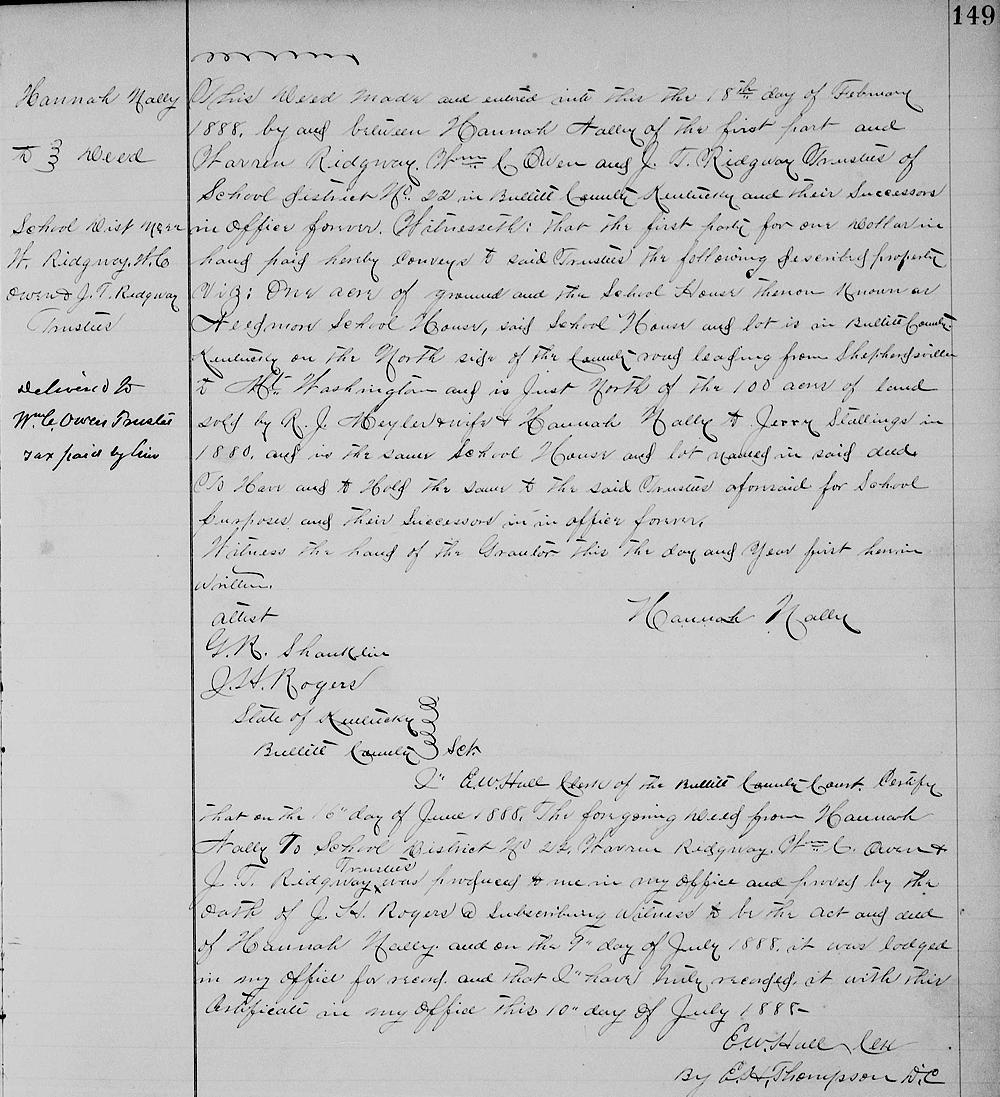 149
Hannah Nally
to Deed
School Dist No 22
W. Ridgway, W. C
Owen & J. T. Ridgway
Trustees
Delivered to
Wm C. Owen Trustee
Tax paid by him
This Deed made and entered into this the 18th day of February
1888, by and between Hannah Nally of the first part and
Warren Ridgway, Wm C Owen and J. T. Ridgway Trustees of
School district No. 22 in Bullitt County Kentucky and their Successors
in Office forever. Witnesseth: that the first party for one Dollar in
hand paid hereby Conveys to said Trustees the following described property
Viz: One acre of ground and the School House thereon Known as
Needmore School House, said School House and lot is in Bullitt County
Kentucky on the North side of the County road leading from Shepherdsville
to Mt. Washington and is Just North of the 100 acres of land
sold by R. J. Meyler & wife & Hannah Nally to Jerry Stallings in
1880, and is the same School House and lot named in said deed.
To Have and to Hold the same to the said Trustees aforesaid for School
purposes, and their Successors in in office forever.
Witness the hand of the Grantor this the day and Year first herein
written.
Attest
Hannah Nally
G. R. Shanklin
J. H. Rogers
State of Kentucky
Bullitt County Sct.
I" E. W. Hall Clerk of the Bullitt County Court. Certify
that on the 16" day of June 1888, The foregoing Deed from Hannah
Nally To School District No 22, Warren Ridgway, Wm C. Owen &
J. T. Ridgway Trustees was produced to me in my Office and proved by the
Oath of J. H. Rogers a Subscribing Witness to be the act and deed
of Hannah Nally. and on the 9" day of July 1888, it was lodged
in my Office for record, and that I" have truly recorded it with this
Certificate in my Office this 10" day of July 1888
E. W. Hall Clk
By E. H. Thompson D. C